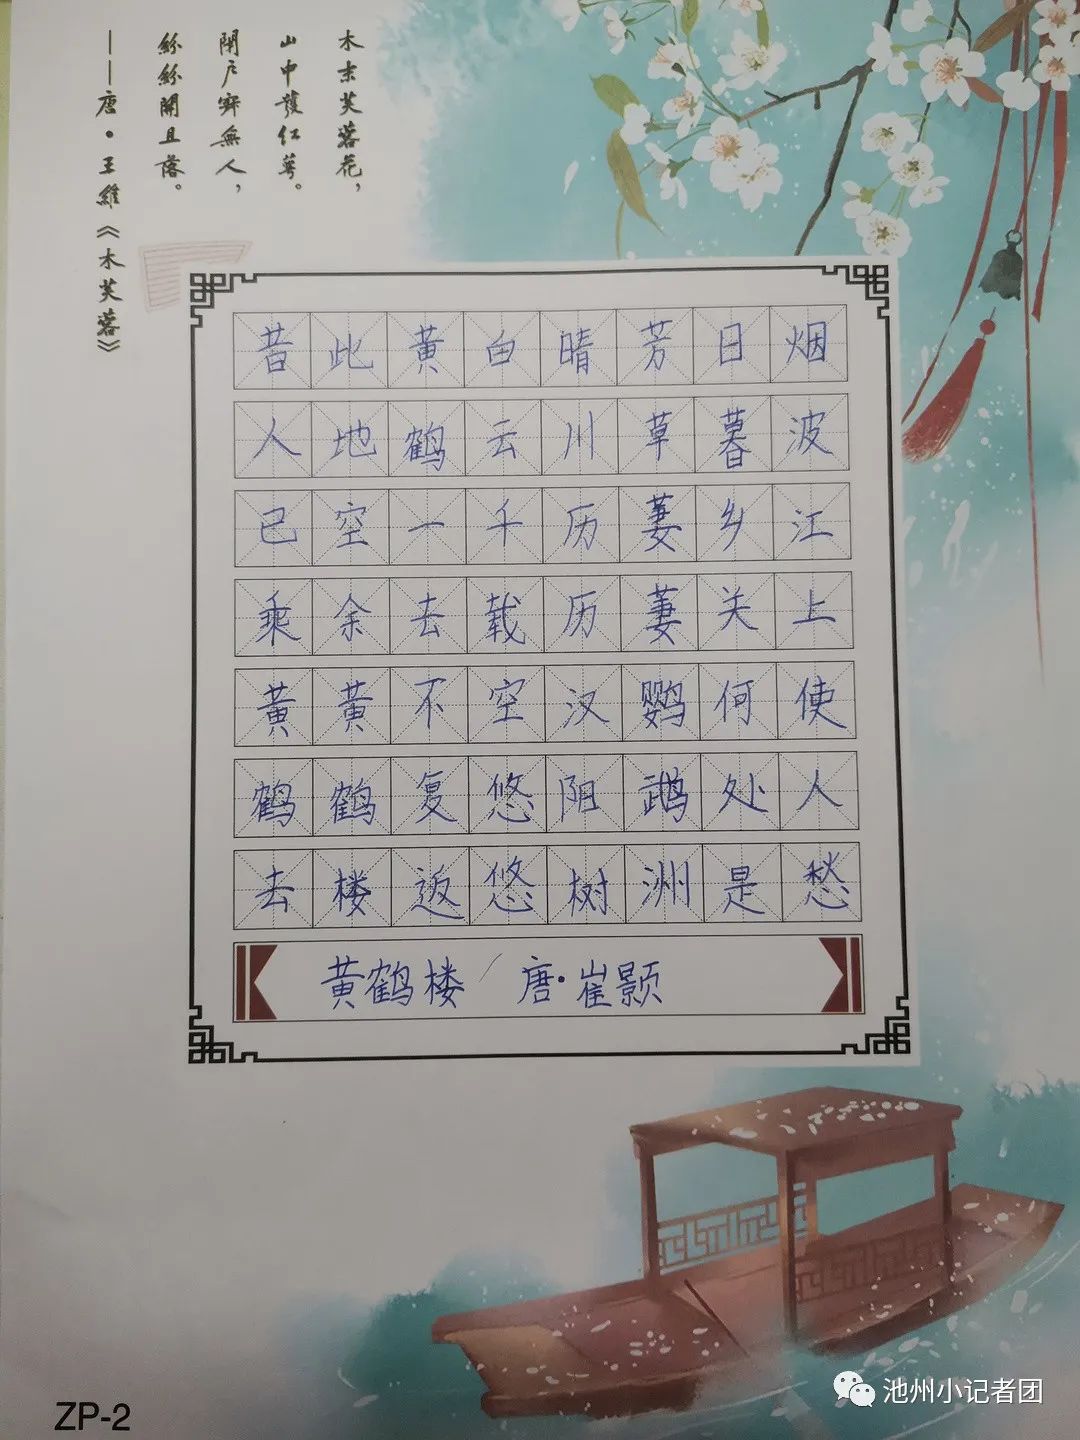 木末芙蓉花，
山中發红萼。
户寂無人，
紛紛開且落。
——唐·王維《木芙蓉》
昔人已乘黄鹤去
此地空余黄鹤楼
黄鹤一去不复返
白云千载空悠悠
晴川历历汉阳树
芳草萋萋鹦鹉洲
日暮乡关何处是
烟波江上使人愁
黄鹤楼/唐·崔颢
ZP-2
池州小记者团